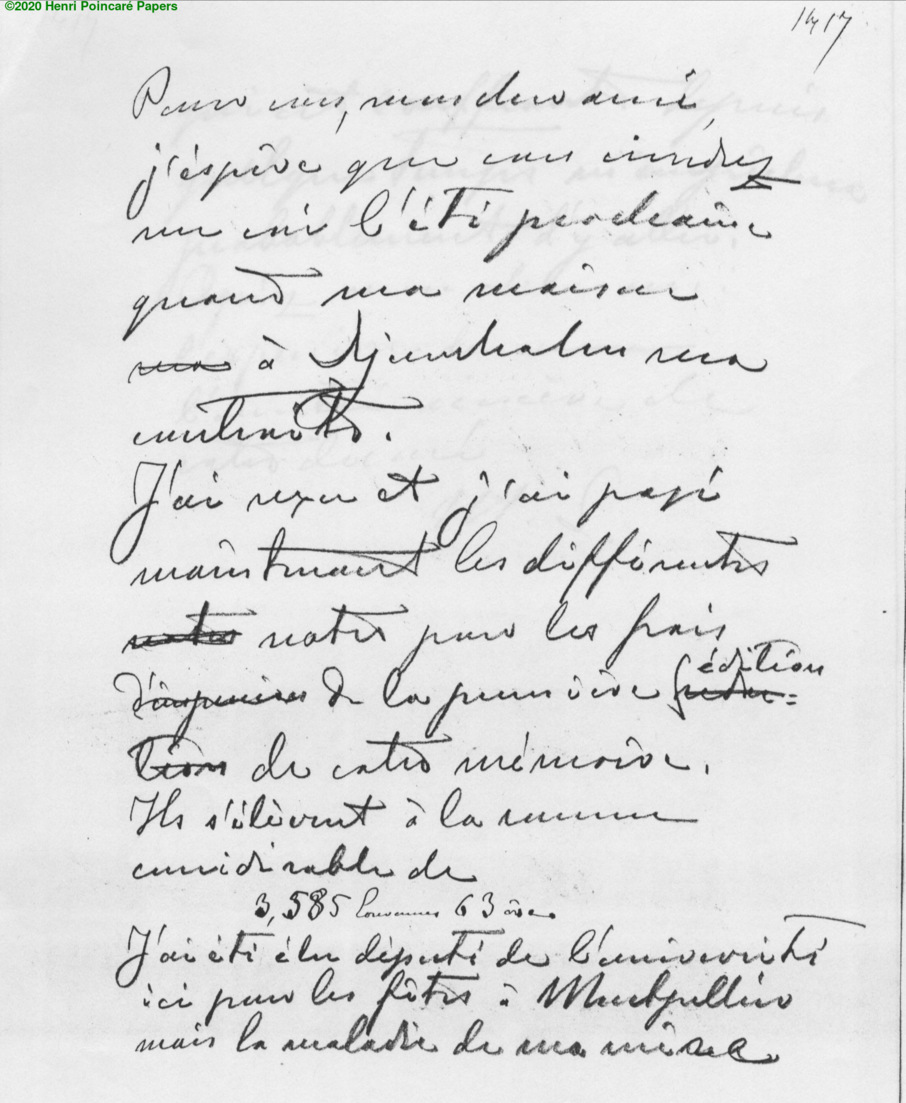 ©2020 Henri Poincaré Papers
1417
Pour vous, mon cher ami,
j'éspère que vous viendrez
me voir l'été prochaine
quand ma maison
ma à Djursholm sera
contruite.
J'ai reçu et j'ai payé
maintenant les différentes
notes notes pour les frais
d'imprimer de la première édition
redac=
tion de votre mémoire.
Ils s'élèvent à la somme
considérable de
3,585 Couronnes 63 öre.
J'ai été élu députi de l'université
ici pour les fêtes à Montpellier
mais la maladie de ma mère